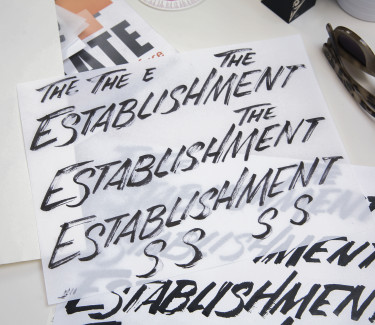 ATE
THE. THE E THE
ESTABLISHMENT
THE
ESTABLISHMENT
ESTABLISHMENT
S S S S
MENT
ESTABLISHMENT